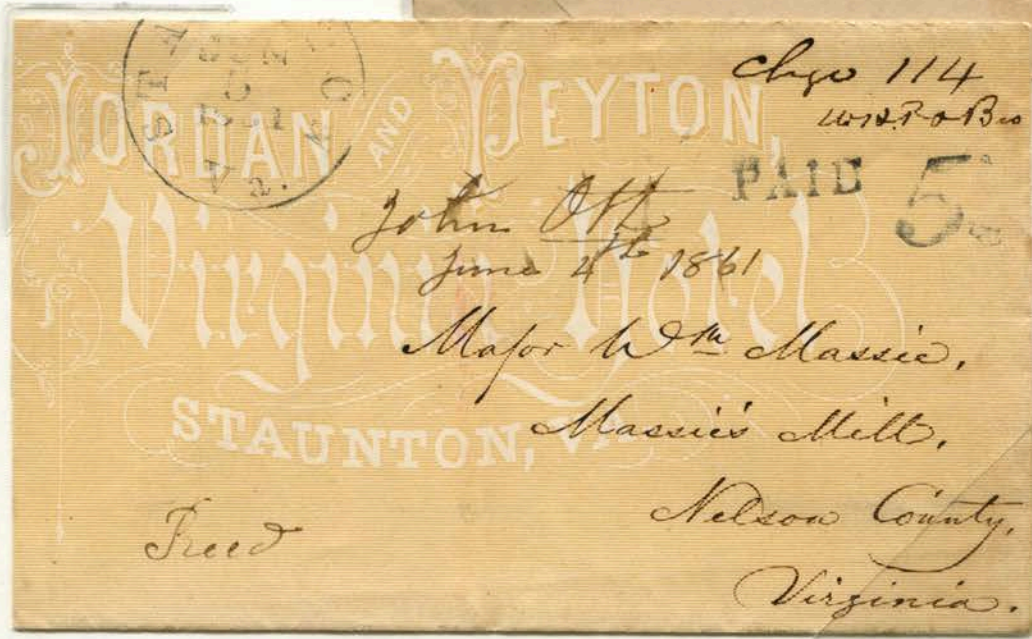 JORDAN AND PEYTON,
Virginia Hotel
STAUNTON, VA
STAUNTON
JUN
5
1861
Va.
Chge 114
PAID 5
John Ott
June 4th 1861
Major Wm Massie,
Massie's Mill,
Nelson County,
Virginia.
Recd